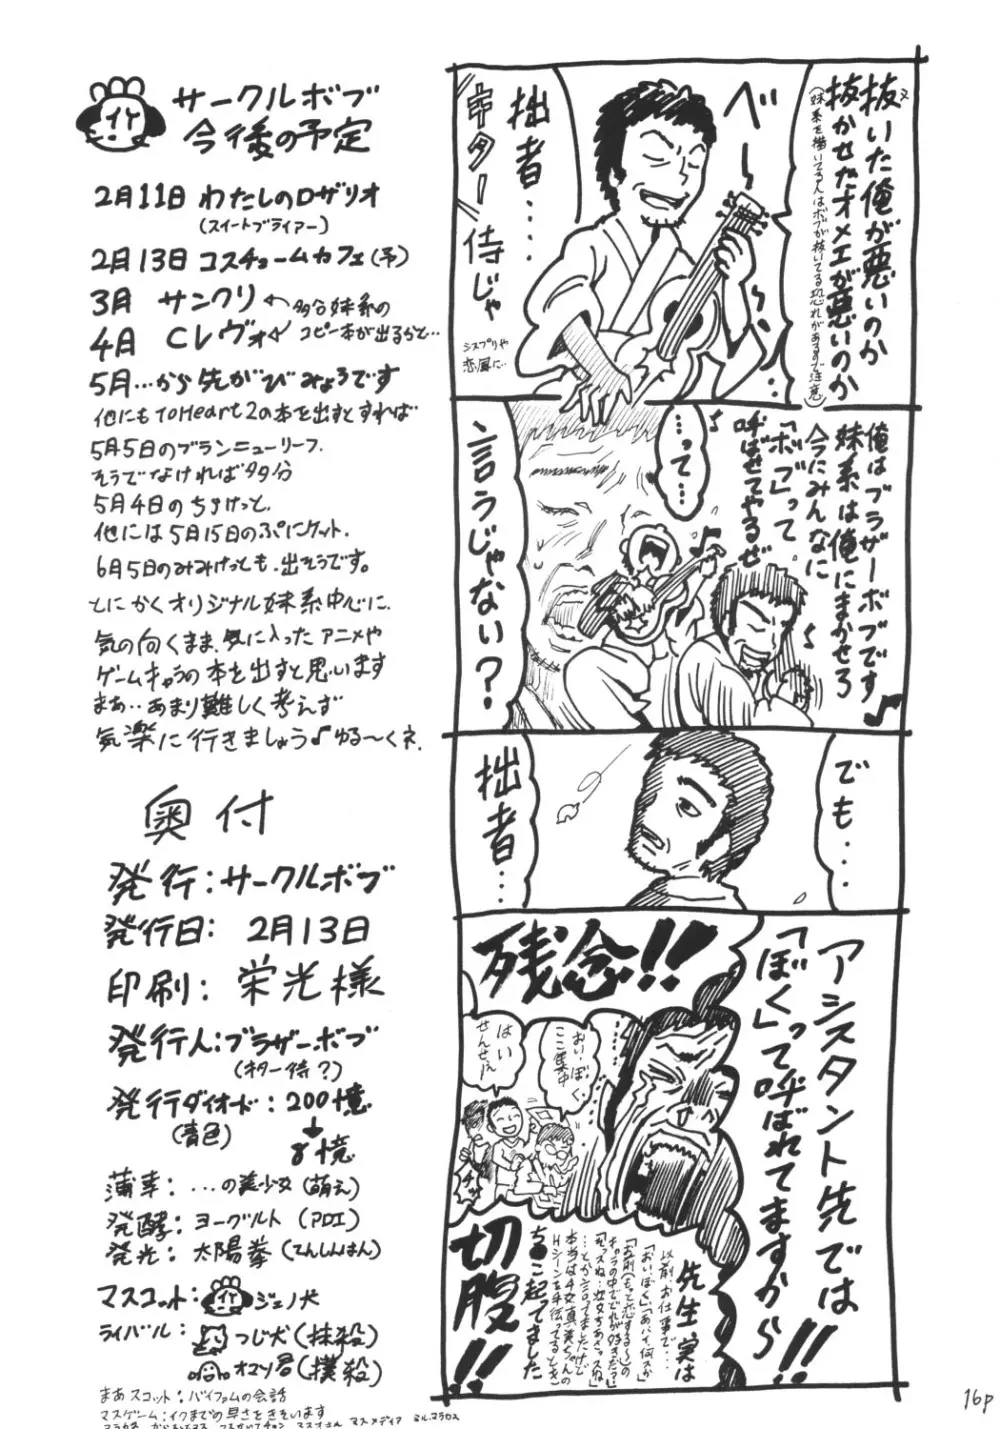 サークルボブ
今後の予定
2月11日 わたしのロザリオ
(スイートブライアー)
2月13日 コスチュームカフェ(予)
3月 サンクリ ← 多分妹系の
4月 Cレヴォ ← コピー本が出るらと…
5月…から先がびみょうです
他にもToHeart2の本を出すとすれば
5月5日のブランニューリーフ.
そうでなければ多分
5月4日のちょけっと.
他には5月15日のぷにケット.
6月5日のみみけっとも.出そうです。
とにかくオリジナル妹系中心に.
気の向くまま.気に入ったアニメや
ゲームキャラの本を出すと思います
まぁ…あまり難しく考えず
気楽に行きましょう♪ゆる〜くネ.
奥付
発行:サークルボブ
発行日: 2月13日
印刷: 栄光様
発行人:ブラザーボブ
(ギター侍?)
発行ダイオード:200憶
(青色) ↓
8憶
薄幸: …の美少女(萌え)
発酵: ヨーグルト (PDI)
発光: 太陽拳(てんしんはん)
マスコット: ジェノ犬
ライバル: つじ犬(抹殺)
オマソ君(撲殺)
まぁスコット:バイファムの会話
マスゲーム:イクまでの早さをきそいます
抜いた俺が悪いのか
抜かせたオメエが悪いのか
(妹系を描いてる人はボブが抜いてる恐れがあるので注意)
ベ〜〜ン…
拙者…
ギター侍じゃ
シスプリや
恋風に…
俺はブラザーボブです
妹系は俺にまかせろ
今にみんなに
「ボブ」って
呼ばせてやるぜ
…って…
言うじゃない?
でも…
拙者…
アシスタント先では
「ぼく」って呼ばれてますから!!
残念!!
おい、ぼく、
ここ集中
はい
せんせえ
先生実は
以前、お仕事で…
「おいぼく」「あハイ何スか」
「お前(もっと恋する〜)の
キャラの中でどれが好きだ?」
…とか言ってましたけど
本当は4女真美ちゃんの
Hシーンを手伝ってるとき
ち●こ起ってました
切腹!!
16p